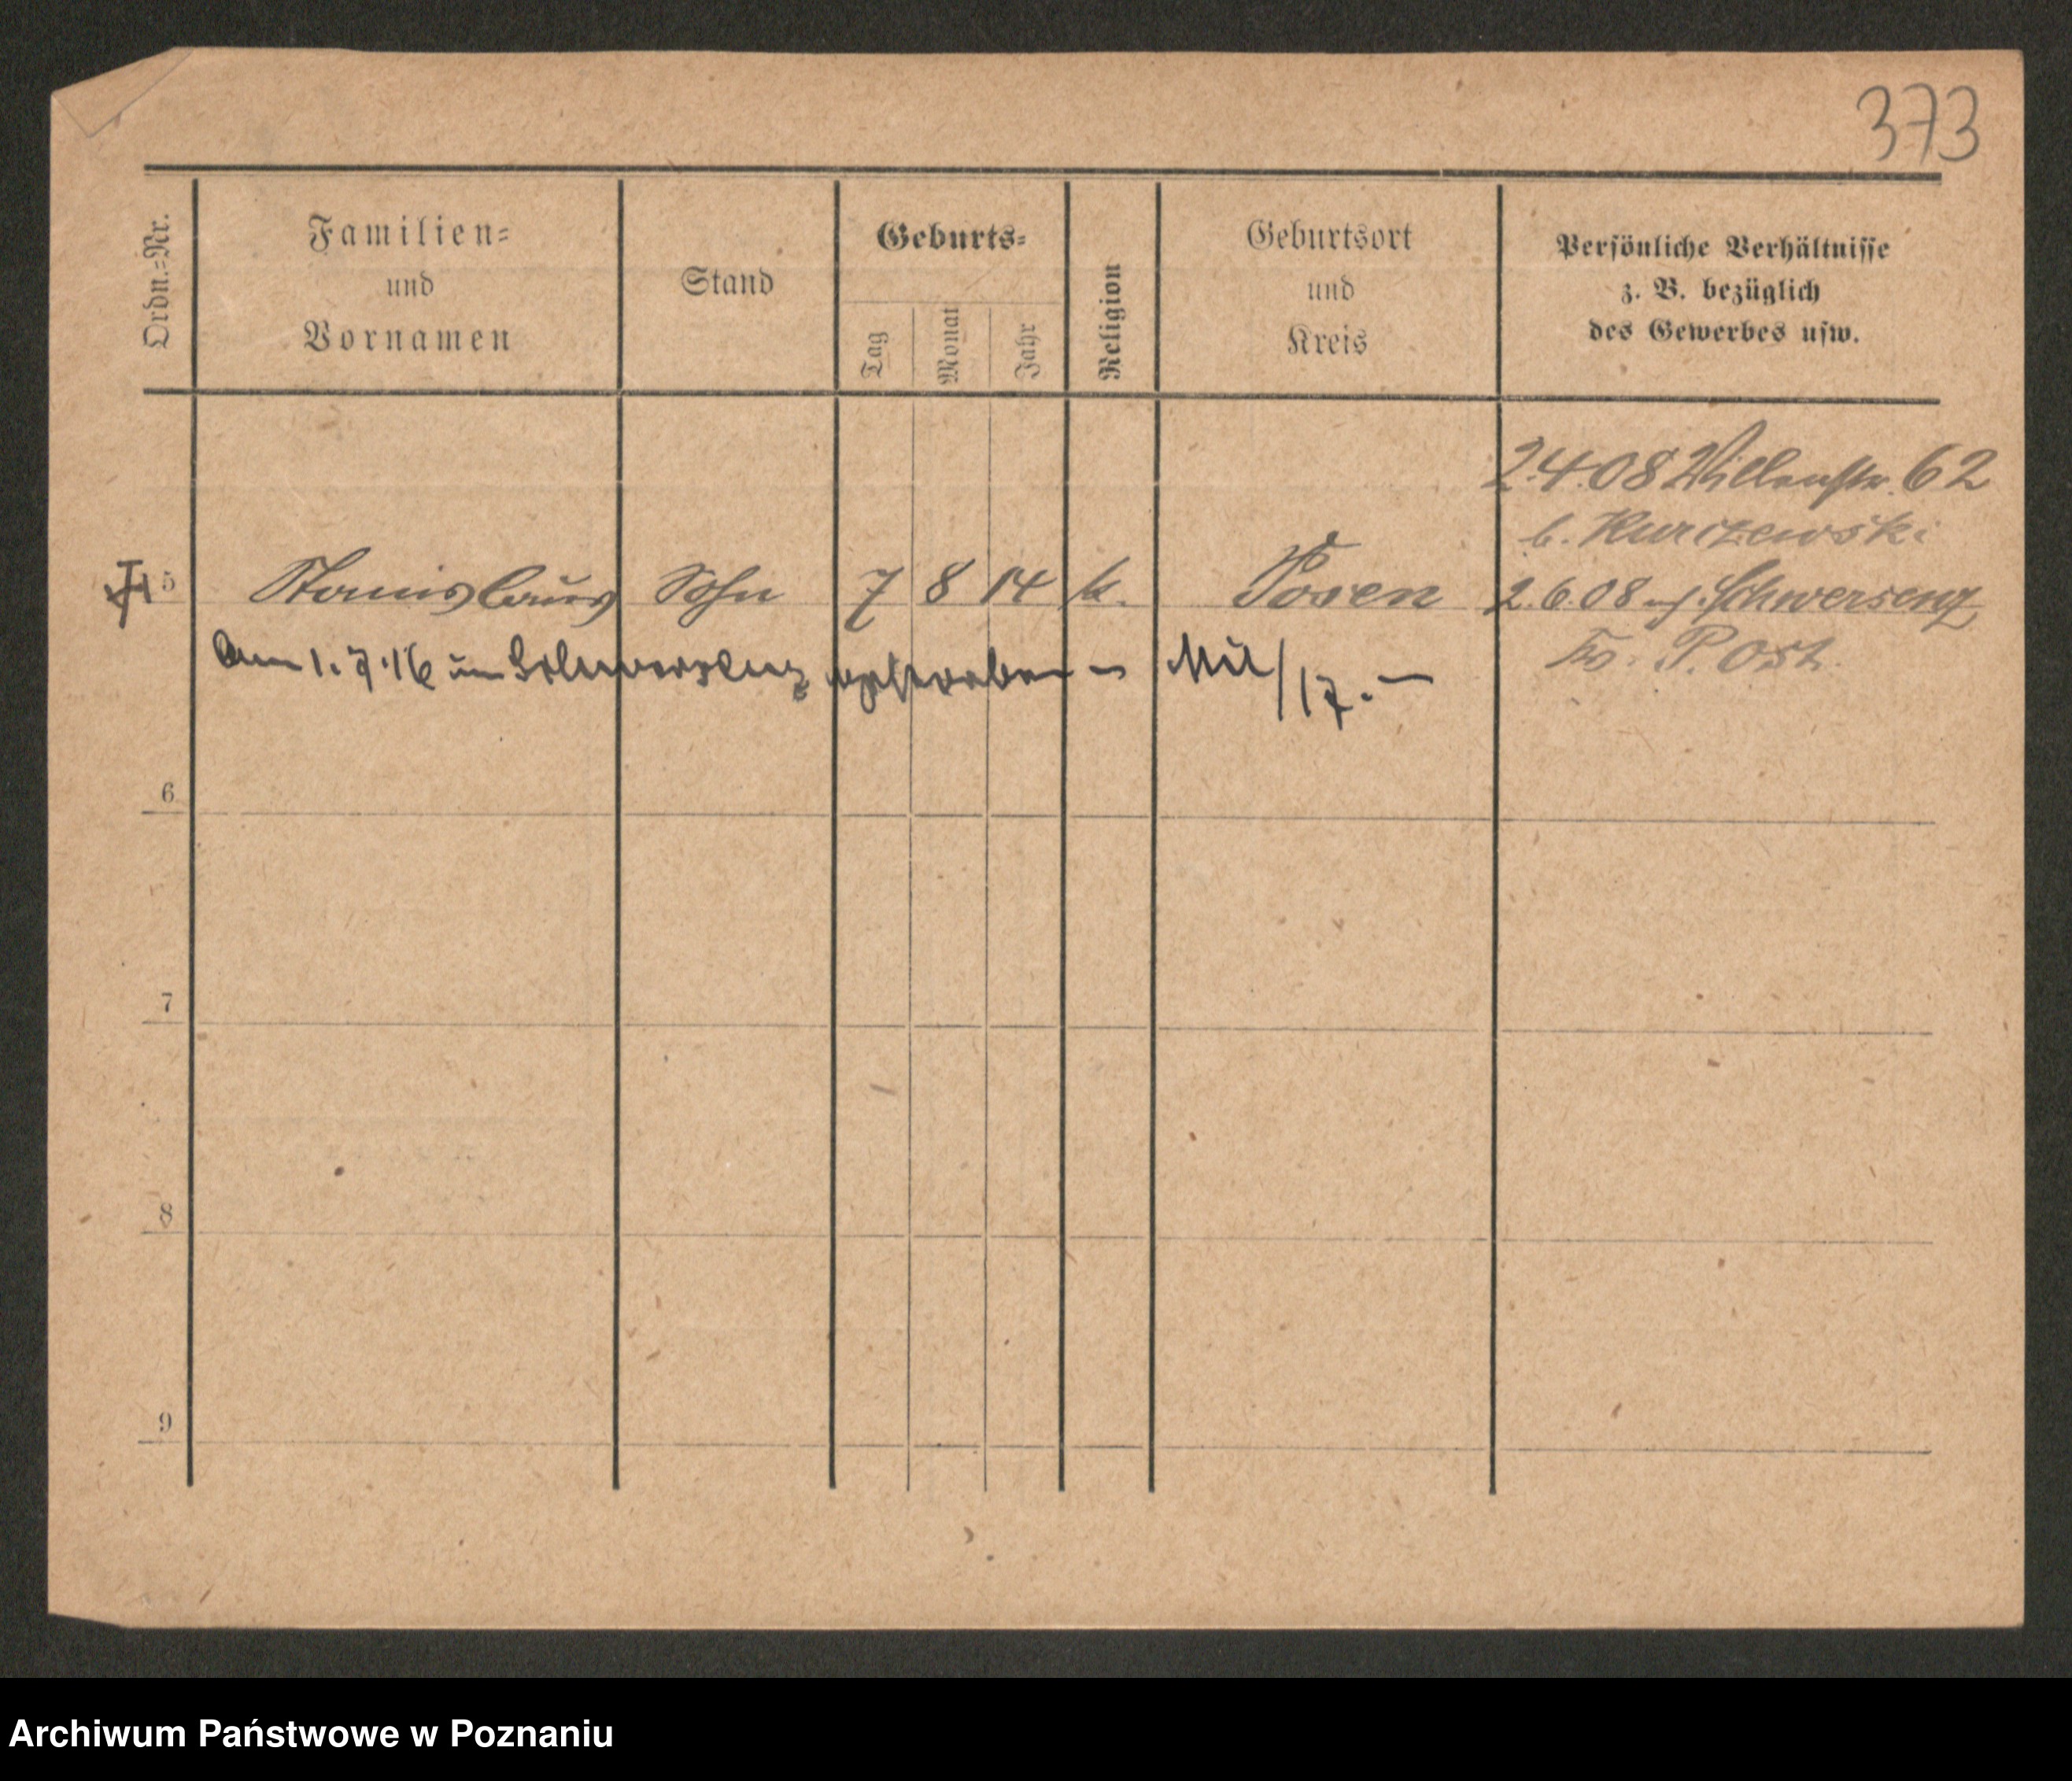 373
Ordn.=Nr.
Familien=
und
Vornamen
Stand
Geburts=
Tag
Monat
Jahr
Religion
Geburtsort
und
Kreis
Persönliche Verhältnisse
z. B. bezüglich
des Gewerbes usw.
2.4.08 Villenstr. 62
b. Kurczewski
5 Stanislaus Sohn 7 8 14 k. Posen
2.6.08 Schwersenz
Kr. P. Ost.
Am 1.7.16 in Schwersenz gestorben – Mil/17.–
6
7
8
9
Archiwum Państwowe w Poznaniu